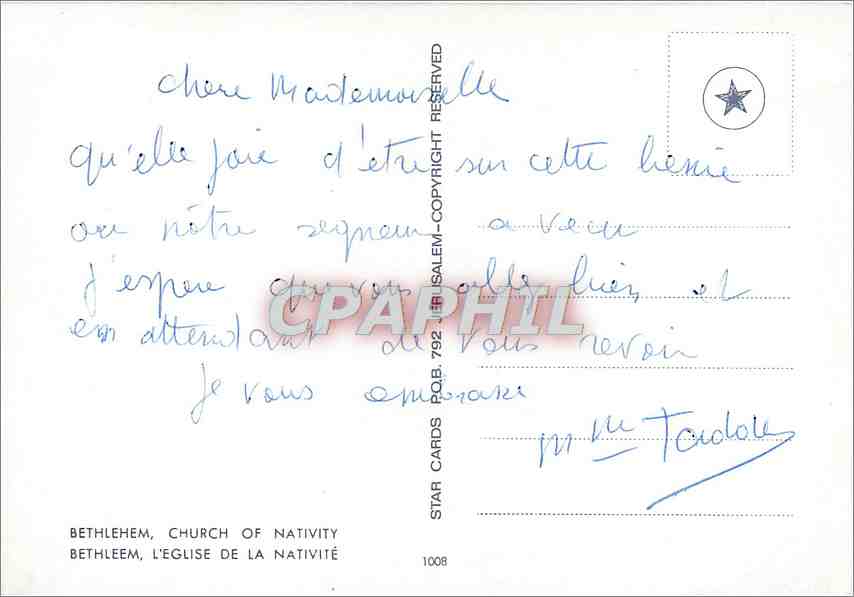 chere Mademoiselle
qu'elle joie d'etre sur cette
ou nôtre segneur a vecu
J'espere que vous allez bien et
en attendant de vous revoir
je vous embrasse
Mme
BETHLEHEM, CHURCH OF NATIVITY
BETHLEEM, L'EGLISE DE LA NATIVITÉ
STAR CARDS P.O.B. 792 JERUSALEM–COPYRIGHT RESERVED
1008
CPAPHIL